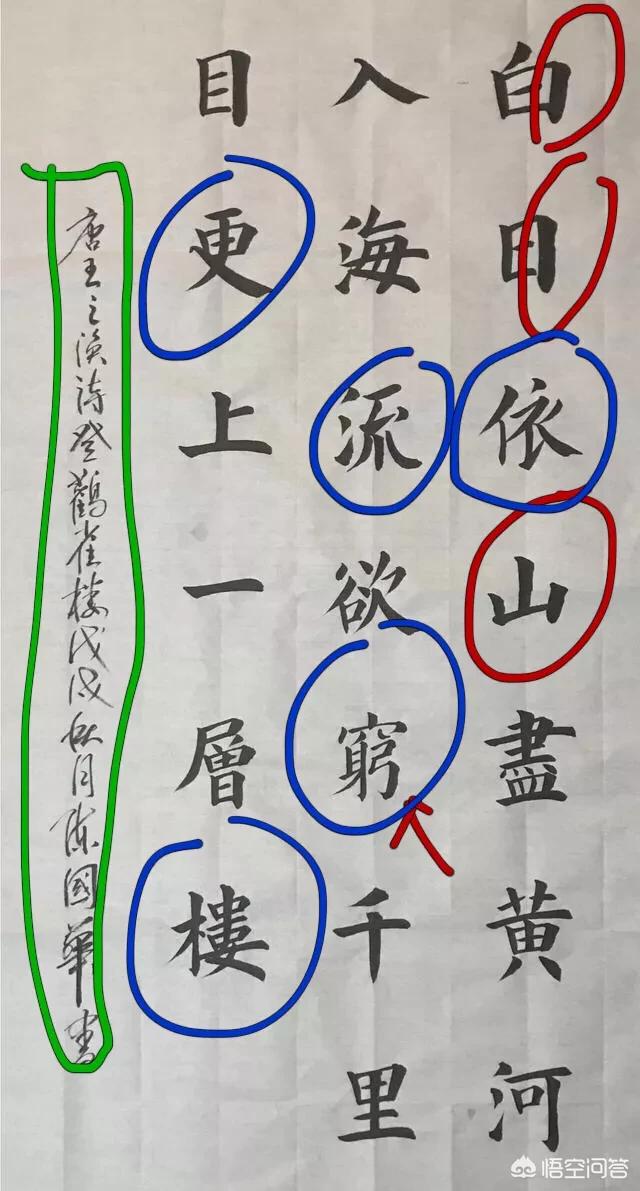 白日依山盡黄河
入海流欲窮千里
目更上一層樓
唐王之渙詩登鸛雀楼戊戌秋月陳國華書
悟空问答